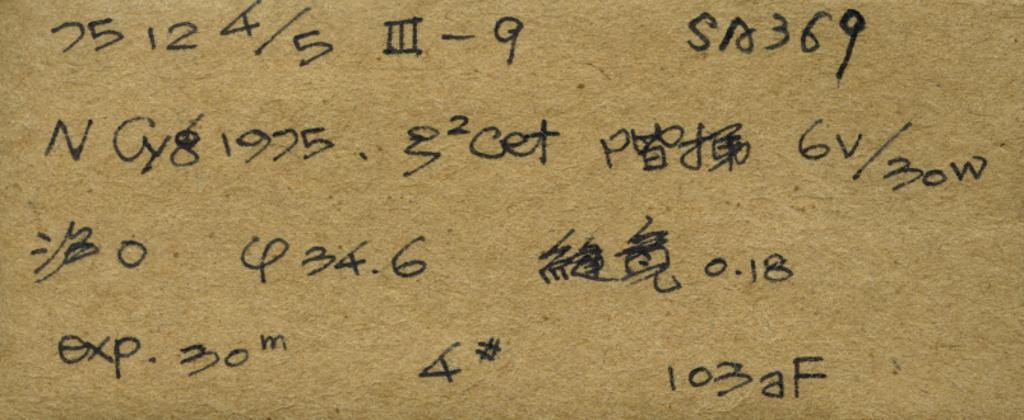 75 12 4/5 III-9 SA369
N Cyg 1975. ξ²Cet 階梯 6V/30W
滤0 φ34.6 縫寬 0.18
exp. 30ᵐ 4# 103aF